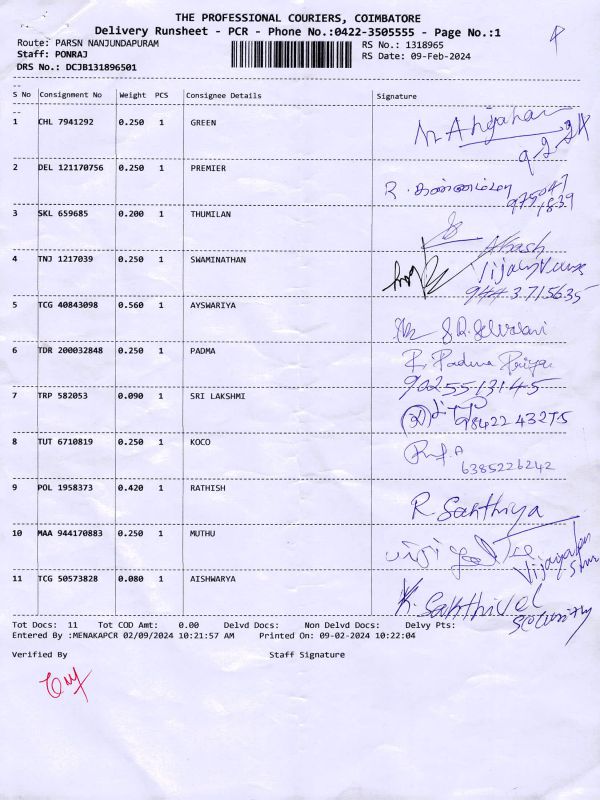 THE PROFESSIONAL COURIERS, COIMBATORE
Delivery Runsheet - PCR - Phone No.:0422-3505555 - Page No.:1
Route: PARSN NANJUNDAPURAM RS No.: 1318965
Staff: PONRAJ RS Date: 09-Feb-2024
DRS No.: DCJB131896501
S No Consignment No Weight PCS Consignee Details Signature
1 CHL 7941292 0.250 1 GREEN
9-2-24
2 DEL 121170756 0.250 1 PREMIER
R.
975047
1839
3 SKL 659685 0.200 1 THUMILAN
Akash
4 TNJ 1217039 0.250 1 SWAMINATHAN
9443715635
5 TCG 40843098 0.560 1 AYSWARIYA
S.R. Selvarani
6 TDR 200032848 0.250 1 PADMA
R. Padma Priya
9025513145
7 TRP 582053 0.090 1 SRI LAKSHMI
98422 43275
8 TUT 6710819 0.250 1 KOCO
6385226242
9 POL 1958373 0.420 1 RATHISH
R. Sakthiya
10 MAA 944170883 0.250 1 MUTHU
11 TCG 50573828 0.080 1 AISHWARYA
K. Sakthivel
Security
Tot Docs: 11 Tot COD Amt: 0.00 Delvd Docs: Non Delvd Docs: Delvy Pts:
Entered By :MENAKAPCR 02/09/2024 10:21:57 AM Printed On: 09-02-2024 10:22:04
Verified By Staff Signature